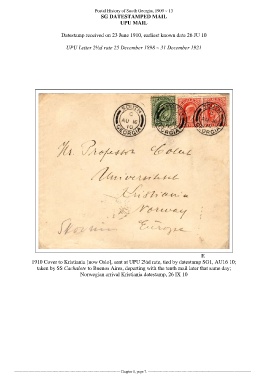 Postal History of South Georgia, 1909 – 13
SG DATESTAMPED MAIL
UPU MAIL
Datestamp received on 23 June 1910, earliest known date 26 JU 10
UPU Letter 2½d rate 25 December 1898 – 31 December 1921
SOUTH
GEORGIA
AU 16
10
Hr Professor Collett
Universitetet
Kristiania
Norway
Europe
R
1910 Cover to Kristiania [now Oslo], sent at UPU 2½d rate, tied by datestamp SG1, AU16 10;
taken by SS Cachalote to Buenos Aires, departing with the tenth mail later that same day;
Norwegian arrival Kristiania datestamp, 26 IX 10
Chapter 4, page 7